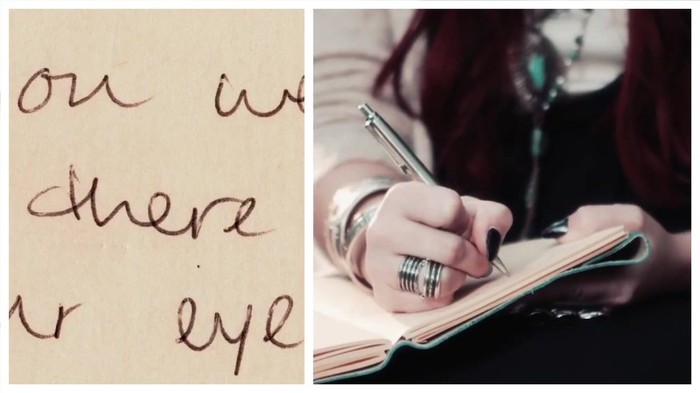 ou we
there
ur eye